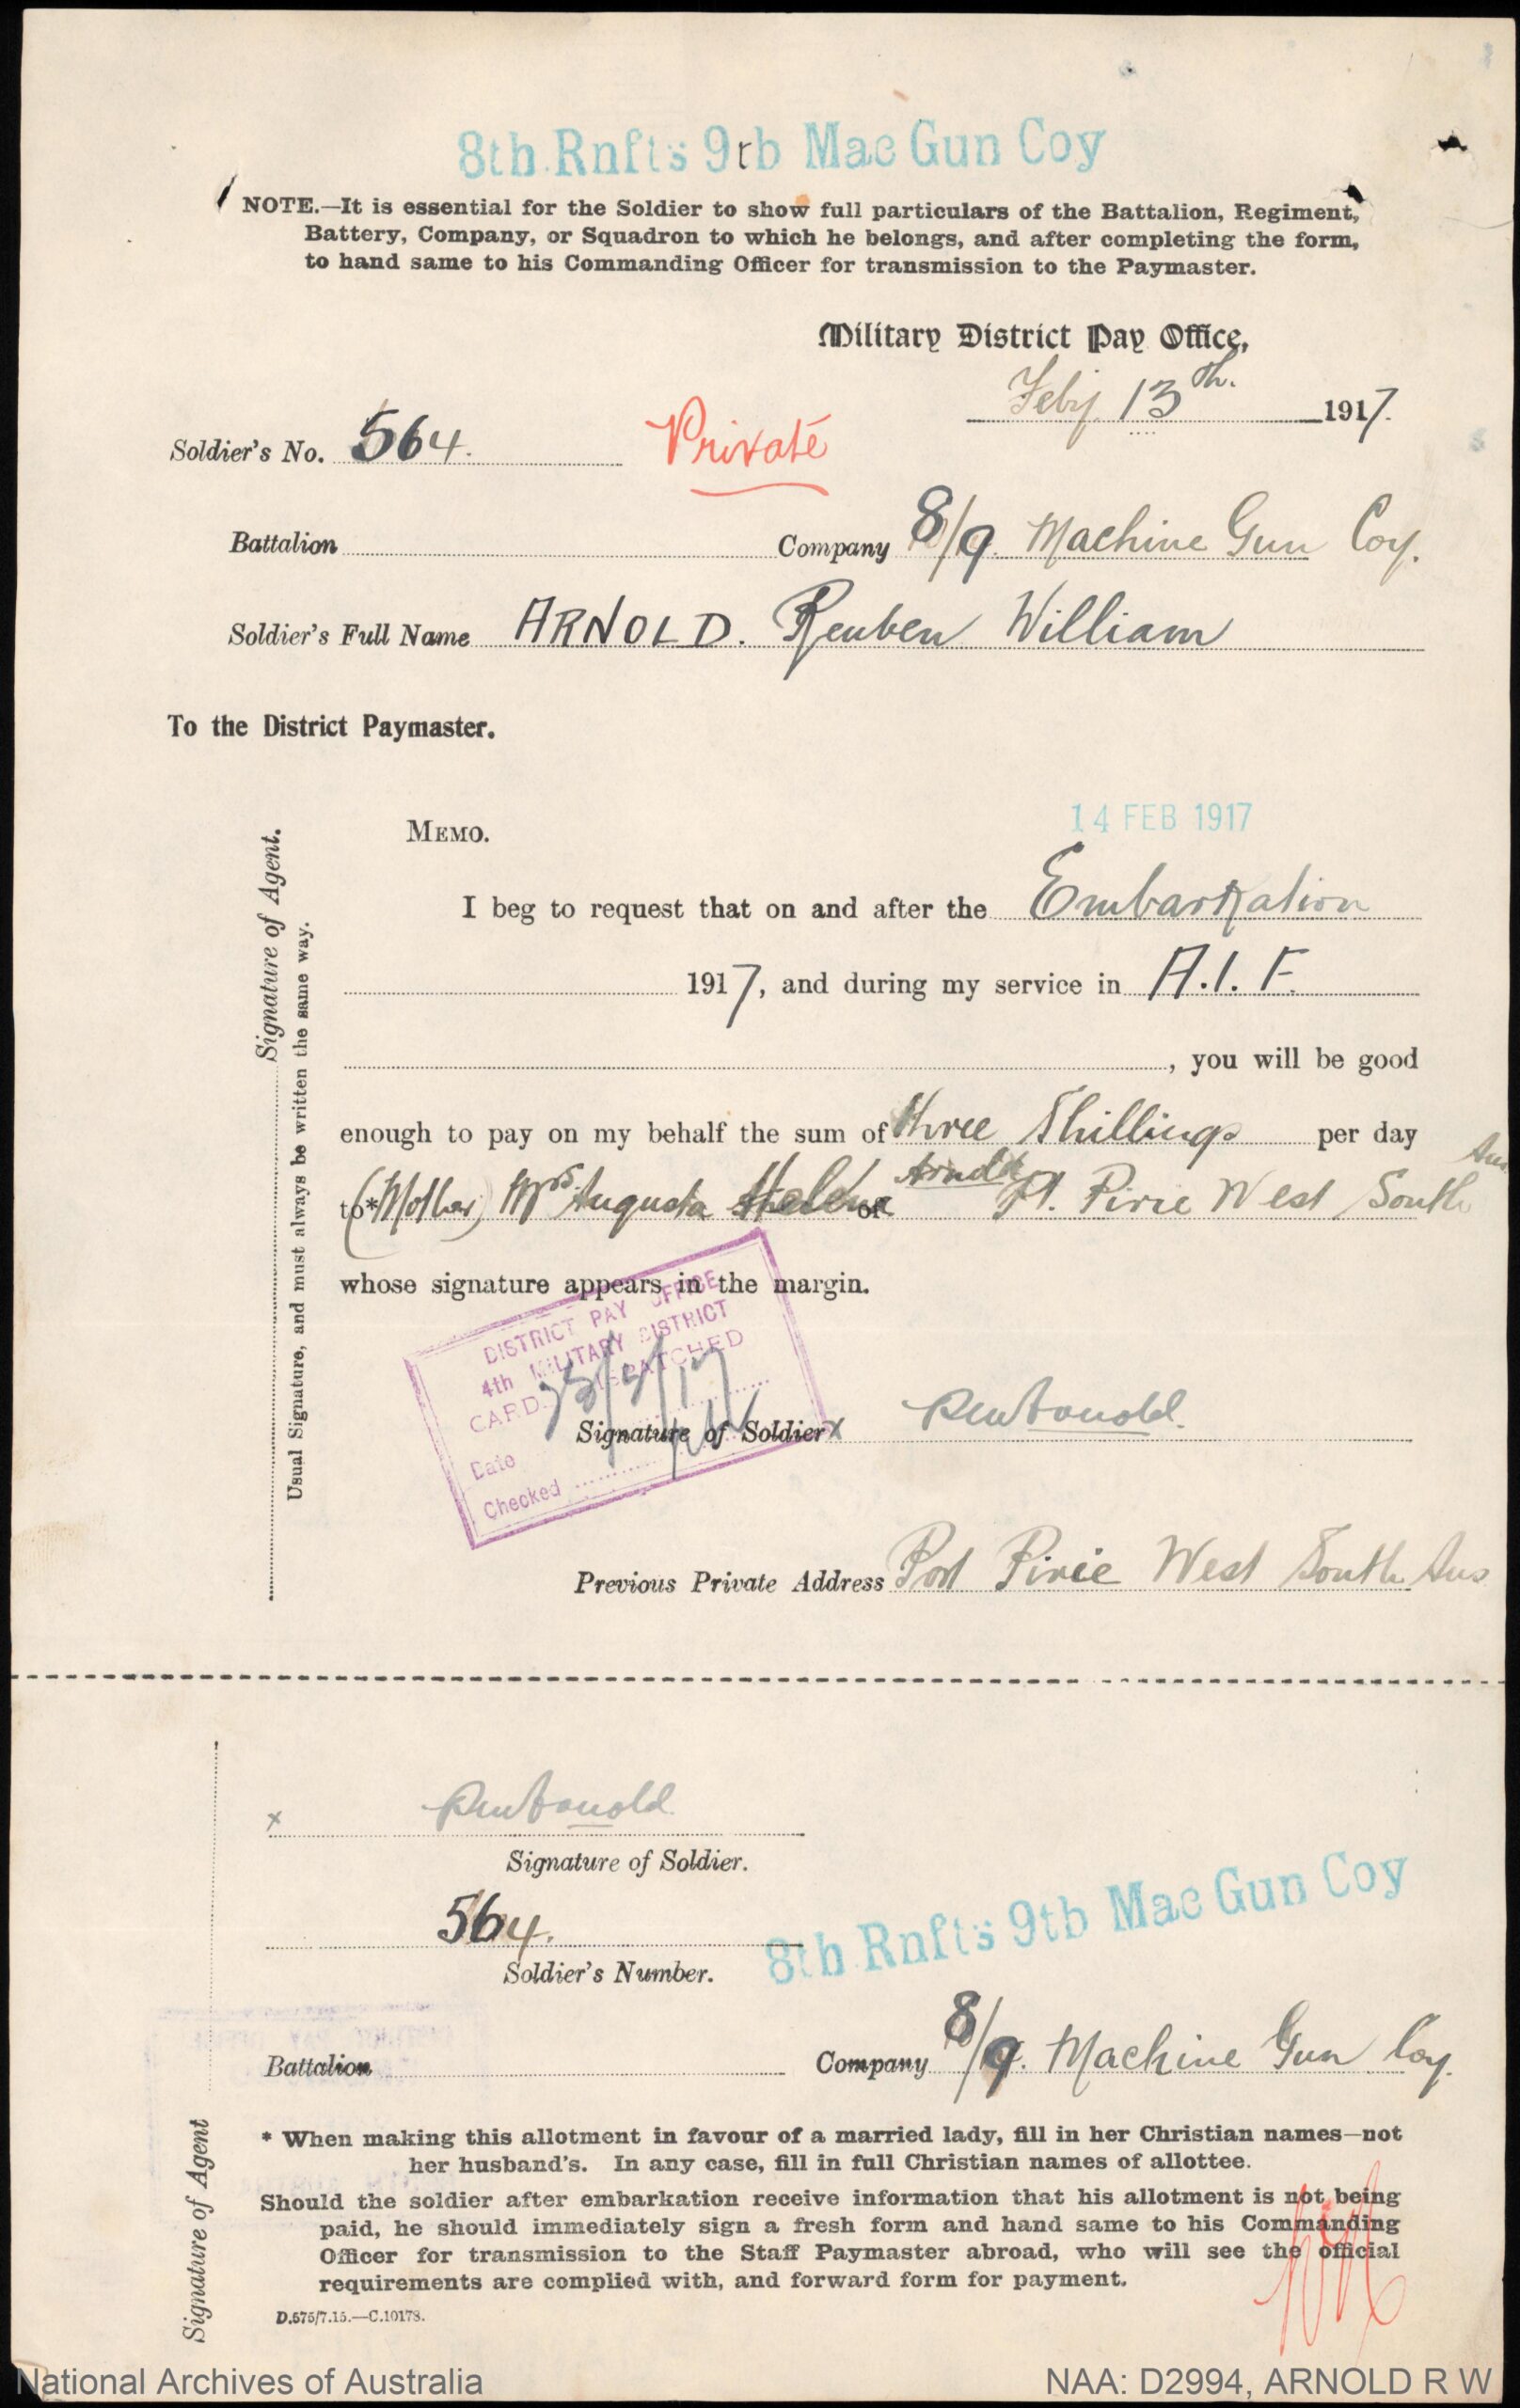 8th Rnfts 9th Mac Gun Coy
NOTE.—It is essential for the Soldier to show full particulars of the Battalion, Regiment,
Battery, Company, or Squadron to which he belongs, and after completing the form,
to hand same to his Commanding Officer for transmission to the Paymaster.
Military District Pay Office,
Feby 13th. 1917.
Soldier's No. 564. Private
Battalion Company 8/9. Machine Gun Coy.
Soldier's Full Name ARNOLD. Reuben William
To the District Paymaster.
14 FEB 1917
MEMO.
I beg to request that on and after the Embarkation
1917, and during my service in A.I.F.
, you will be good
enough to pay on my behalf the sum of three Shillings per day
to* (Mother) Mrs Augusta Helena Arnold of Pt. Pirie West South Aus
whose signature appears in the margin.
DISTRICT PAY OFFICE
4th MILITARY DISTRICT
CARD DISPATCHED
Date
Checked
Signature of Soldier x RewArnold.
Previous Private Address Port Pirie West South Aus
Signature of Agent.
Usual Signature, and must always be written the same way.
x RewArnold
Signature of Soldier.
564.
Soldier's Number.
8th Rnfts 9th Mac Gun Coy
Battalion Company 8/9. Machine Gun Coy.
* When making this allotment in favour of a married lady, fill in her Christian names—not
her husband's. In any case, fill in full Christian names of allottee.
Should the soldier after embarkation receive information that his allotment is not being
paid, he should immediately sign a fresh form and hand same to his Commanding
Officer for transmission to the Staff Paymaster abroad, who will see the official
requirements are complied with, and forward form for payment.
D.575/7.15.—C.10178.
Signature of Agent
National Archives of Australia
NAA: D2994, ARNOLD R W